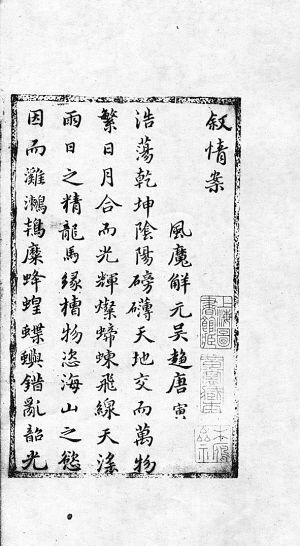 叙情案
風魔解元吳趨唐寅
浩蕩乾坤陰陽磅礴天地交而萬物
繁日月合而光輝燦蝀飛線天滛
雨日之精龍馬緣槽物恣海山之慾
因而灘糜蜂蝗蝶亂韶光
上海圖書館藏